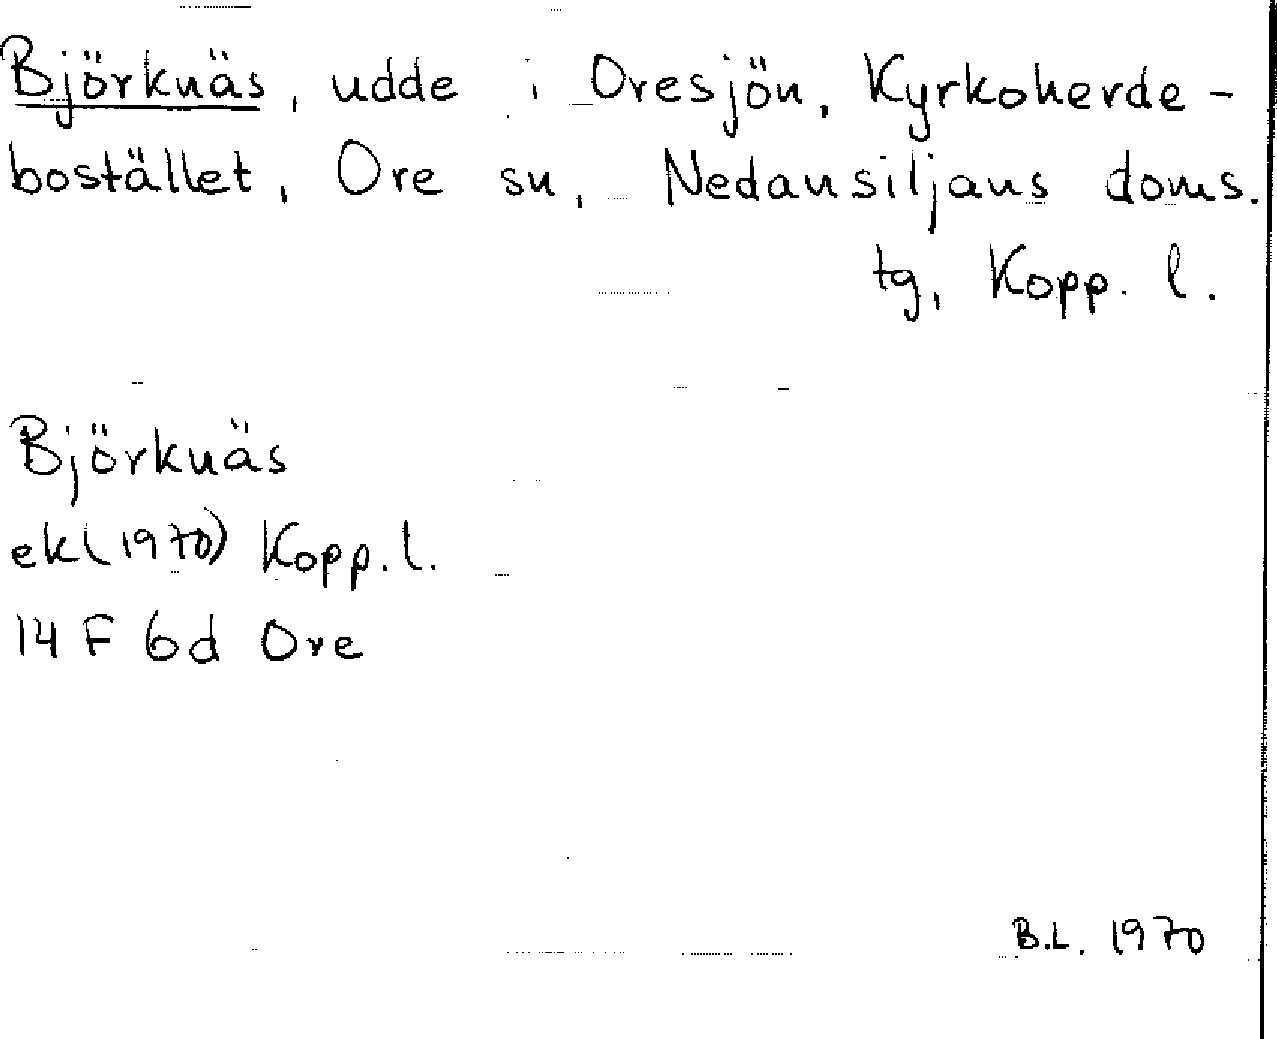 Björknäs, udde i Oresjön, Kyrkoherde-
bostället, Ore sn, Nedansiljans doms.
tg, Kopp. l.
Björknäs
ekl (1970) Kopp. l.
14 F 6d Ore
B.L. 1970